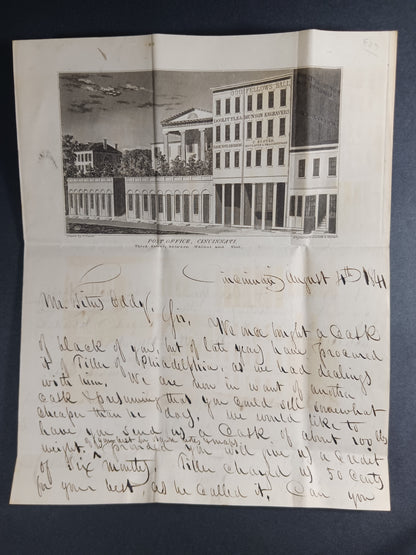 ODD FELLOWS HALL
DOOLITTLE & MUNSON ENGRAVERS
POST OFFICE, CINCINNATI.
Third Street, between Walnut and Vine.
Cincinnati August 4th 1841
Mr. Titus Eddy, Sir, We once bought a Cask
of black of you, but of late years have procured
it of Tiller of Philadelphia, as we had dealings
with him. We are now in want of another
cask & presuming that you could sell somewhat
cheaper than he does, we would like to
have you send us a Cask of about 100 lbs
weight. provided you will give us a Credit
of your best
of Six Months. Tiller charged us 50 Cents
for your best as he called it. Can you